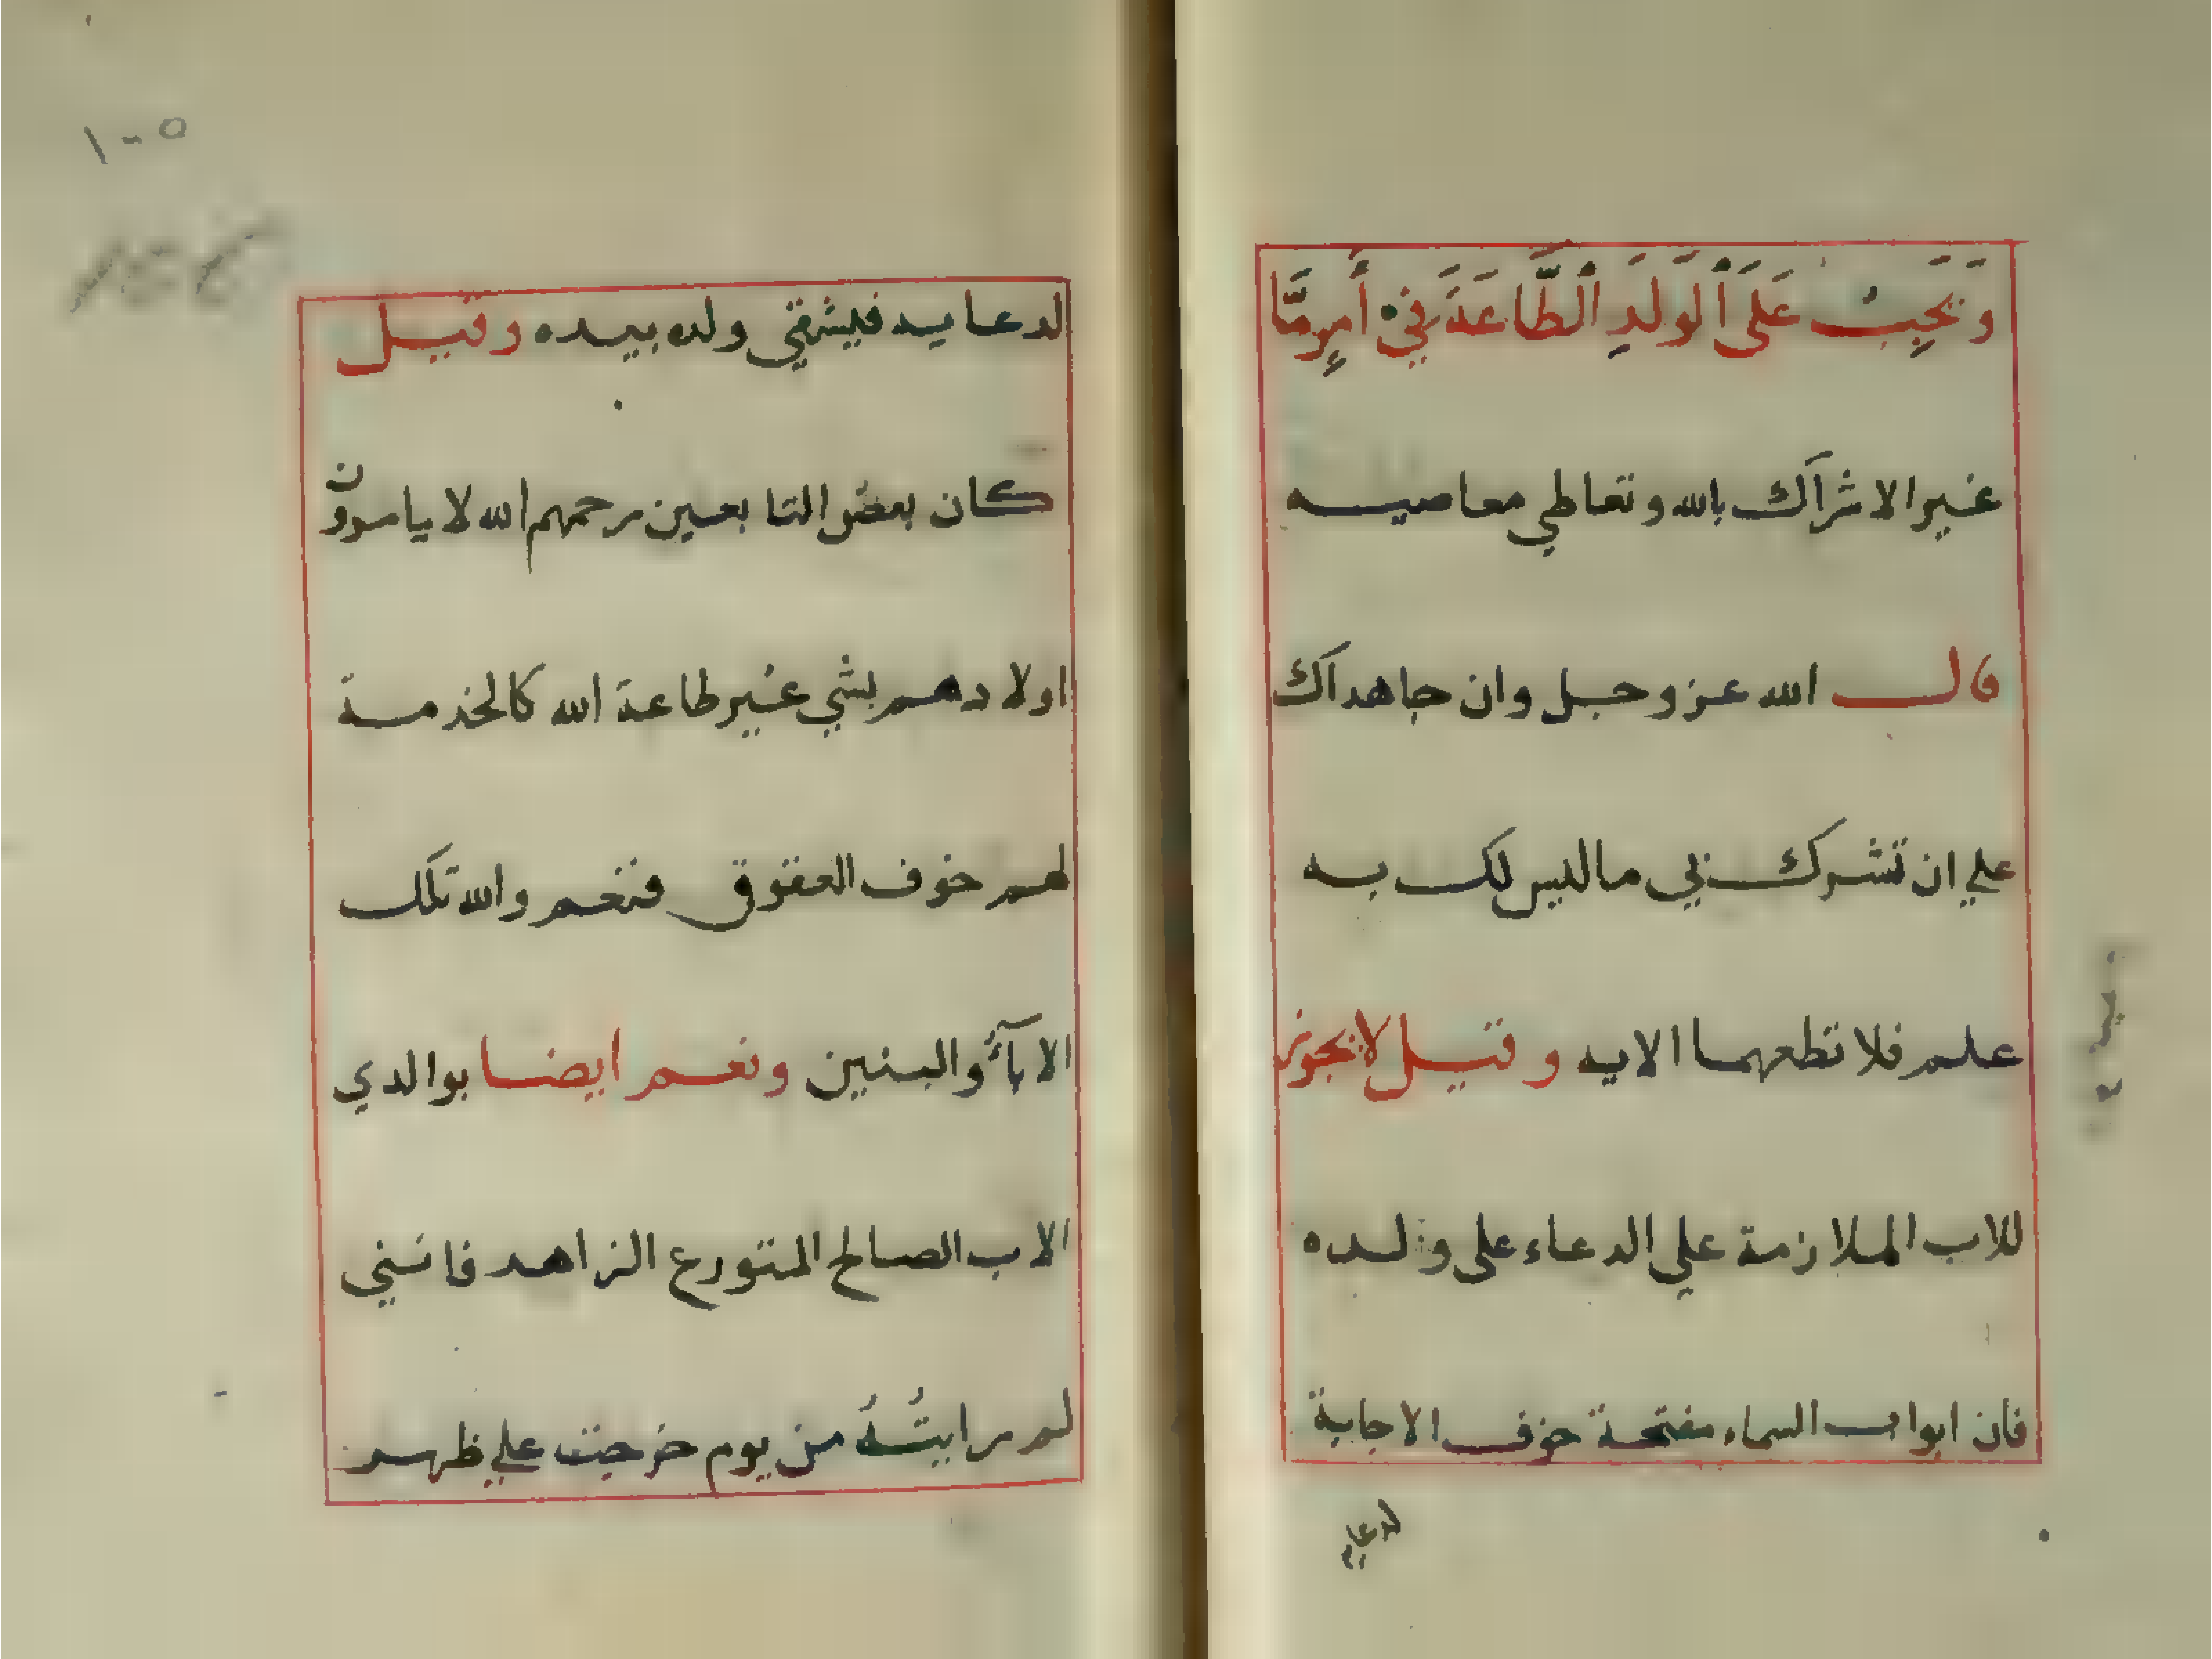 وَيَجِبُ عَلَى ٱلْوَلَدِ ٱلطَّاعَةَ فِي أَمِرِمَّا
غير الاشراك بالله وتعاطي معاصيه
قال الله عز وجل وان جاهداك
علي ان تشرك بي ما ليس لك به
علم فلا تطعهما الايه وقيل لا يجوز
للاب الملازمة علي الدعاء على ولده
فان ابواب السماء مفتحة خوف الاجابة
لدعايه
١٠٥
لدعايه فيشقي ولده بيده وقيل
كان بعض التابعين رحمهم الله لا يامرون
اولادهم بشي غير طاعة الله كالخدمة
لهم خوف العقوق فنعم والله تلك
الابآء والبنين ونعم ايضا بوالدي
الاب الصالح المتورع الزاهد فانني
لم رايتُهُ من يوم خرجت علي ظهر